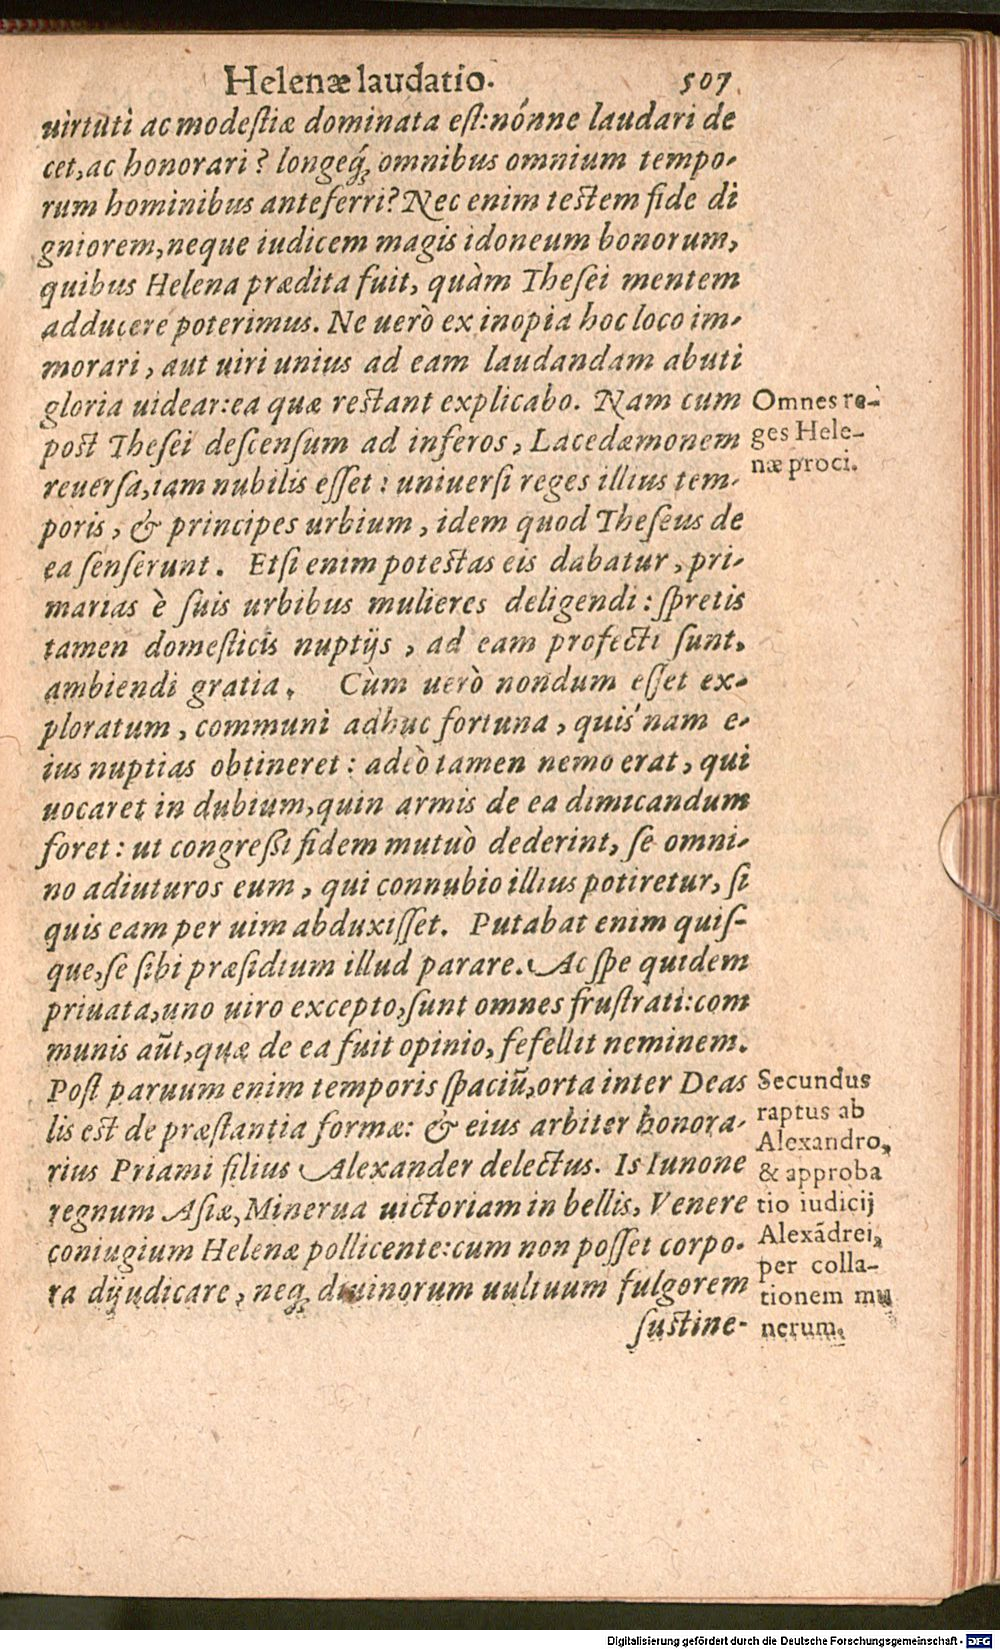 Helenæ laudatio. 507
uirtuti ac modeſtiæ dominata eſt: nónne laudari de
cet, ac honorari? longeq́ꝫ omnibus omnium tempo-
rum hominibus anteferri? Nec enim teſtem fide di
gniorem, neque iudicem magis idoneum bonorum,
quibus Helena prædita fuit, quàm Theſei mentem
adducere poterimus. Ne uerò ex inopia hoc loco im-
morari, aut uiri unius ad eam laudandam abuti
gloria uidear: ea quæ reſtant explicabo. Nam cum
poſt Theſei deſcenſum ad inferos, Lacedæmonem
reuerſa, iam nubilis eſſet: uniuerſi reges illius tem-
poris, & principes urbium, idem quod Theſeus de
ea ſenſerunt. Etſi enim poteſtas eis dabatur, pri-
marias è ſuis urbibus mulieres deligendi: ſpretis
tamen domeſticis nuptijs, ad eam profecti ſunt,
ambiendi gratia. Cùm uerò nondum eſſet ex-
ploratum, communi adhuc fortuna, quis'nam e-
ius nuptias obtineret: adeò tamen nemo erat, qui
uocaret in dubium, quin armis de ea dimicandum
foret: ut congreſsi fidem mutuò dederint, ſe omni-
no adiuturos eum, qui connubio illius potiretur, ſi
quis eam per uim abduxiſſet. Putabat enim quiſ-
que, ſe ſibi præſidium illud parare. Ac ſpe quidem
priuata, uno uiro excepto, ſunt omnes fruſtrati: com
munis aūt, quæ de ea fuit opinio, fefellit neminem.
Poſt paruum enim temporis ſpaciū, orta inter Deas
lis eſt de præſtantia formæ: & eius arbiter honora-
rius Priami filius Alexander delectus. Is Iunone
regnum Aſiæ, Minerua uictoriam in bellis, Venere
coniugium Helenæ pollicente: cum non poſſet corpo-
ra dijudicare, neqꝫ diuinorum uultuum fulgorem
ſuſtine-
Omnes re-
ges Hele-
næ proci.
Secundus
raptus ab
Alexandro,
& approba
tio iudicij
Alexādrei,
per colla-
tionem mu
nerum.
Digitalisierung gefördert durch die Deutsche Forschungsgemeinschaft - DFG